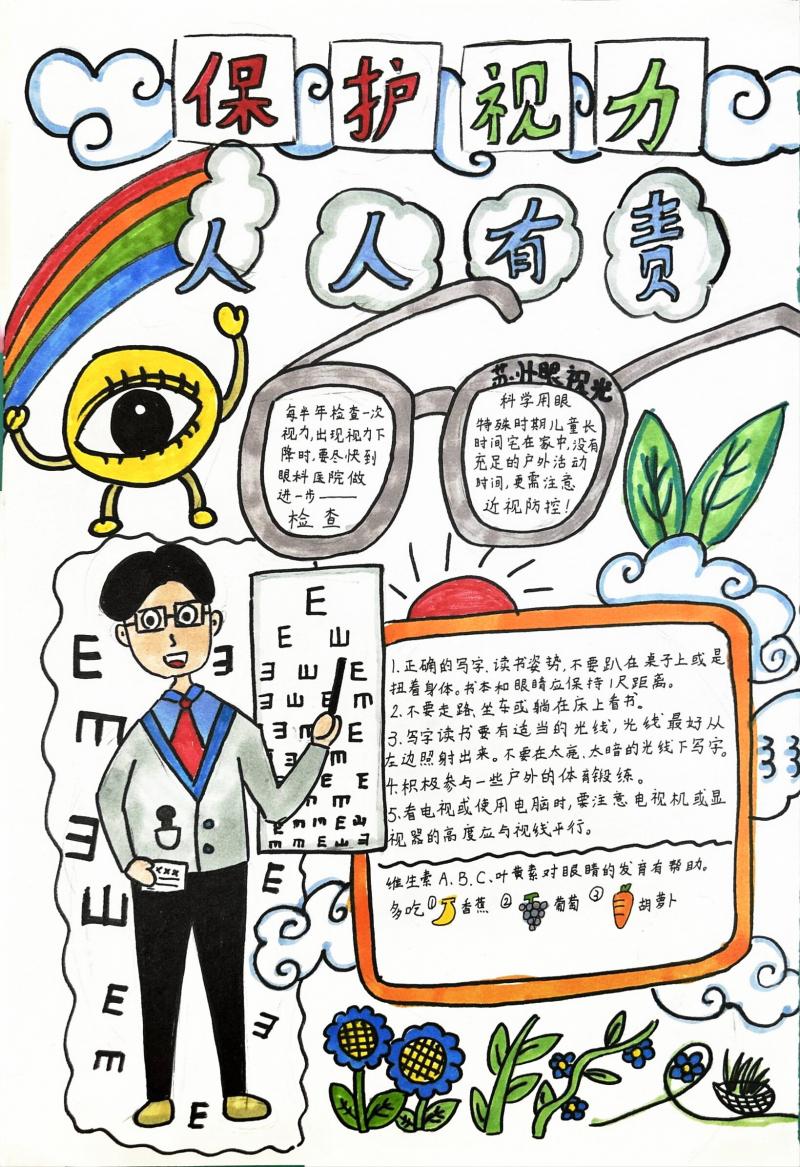 保护视力
人人有责
每半年检查一次
视力,出现视力下
降时,要尽快到
眼科医院做
进一步——
检查
苏州眼视光
科学用眼
特殊时期儿童长
时间宅在家中,没有
充足的户外活动
时间,更需注意
近视防控!
1.正确的写字、读书姿势,不要趴在桌子上或是
扭着身体。书本和眼睛应保持1尺距离。
2.不要走路、坐车或躺在床上看书。
3.写字读书要有适当的光线,光线最好从
左边照射出来。不要在太亮、太暗的光线下写字。
4.积极参与一些户外的体育锻练。
5.看电视或使用电脑时,要注意电视机或显
视器的高度应与视线平行。
维生素A.B.C.叶黄素对眼睛的发育有帮助。
多吃①香蕉 ②葡萄 ③胡萝卜
E
E E